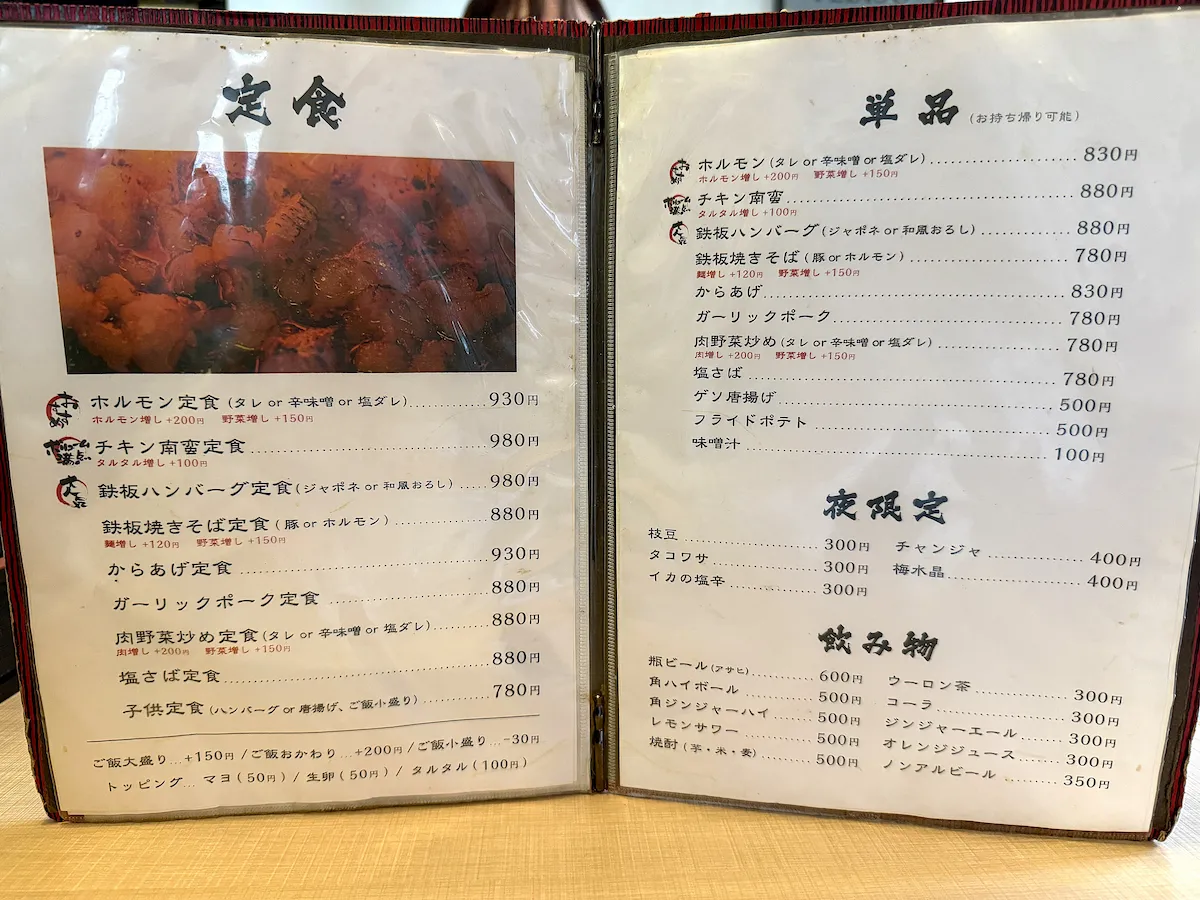 定食
おすすめ ホルモン定食 (タレ or 辛味噌 or 塩ダレ)..........930円
ホルモン増し+200円 野菜増し+150円
チキン南蛮定食..........980円
タルタル増し+100円
人気 鉄板ハンバーグ定食(ジャポネ or 和風おろし).....980円
鉄板焼きそば定食(豚 or ホルモン)..........880円
麺増し+120円 野菜増し+150円
からあげ定食..........930円
ガーリックポーク定食..........880円
肉野菜炒め定食(タレ or 辛味噌 or 塩ダレ)..........880円
肉増し+200円 野菜増し+150円
塩さば定食..........880円
子供定食(ハンバーグ or 唐揚げ、ご飯小盛り)..........780円
ご飯大盛り...+150円/ご飯おかわり...+200円/ご飯小盛り...-30円
トッピング... マヨ(50円)/生卵(50円)/ タルタル(100円)
単品(お持ち帰り可能)
おすすめ ホルモン(タレ or 辛味噌 or 塩ダレ)..........830円
ホルモン増し+200円 野菜増し+150円
チキン南蛮..........880円
タルタル増し+100円
人気 鉄板ハンバーグ(ジャポネ or 和風おろし)..........880円
鉄板焼きそば(豚 or ホルモン)..........780円
麺増し+120円 野菜増し+150円
からあげ..........830円
ガーリックポーク..........780円
肉野菜炒め(タレ or 辛味噌 or 塩ダレ)..........780円
肉増し+200円 野菜増し+150円
塩さば..........780円
ゲン唐揚げ..........500円
フライドポテト..........500円
味噌汁..........100円
夜限定
枝豆..........300円
タコワサ..........300円
イカの塩辛..........300円
チャンジャ..........400円
梅水晶..........400円
飲み物
瓶ビール(アサヒ)..........600円
角ハイボール..........500円
角ジンジャーハイ..........500円
レモンサワー..........500円
焼酎(芋・米・麦)..........500円
ウーロン茶..........300円
コーラ..........300円
ジンジャーエール..........300円
オレンジジュース..........300円
ノンアルビール..........350円